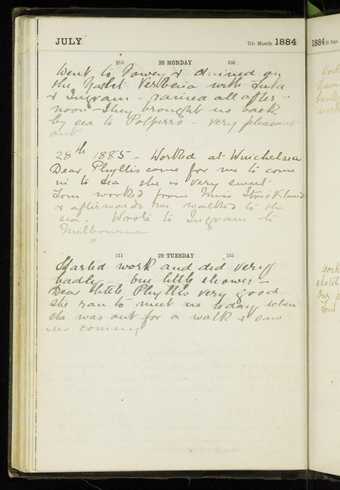 JULY
7th Month 1884
28 MONDAY
Went to Fowey & dined on
the Yacht Verbena with
& Ingram - rained all after-
noon they brought us back
by sea to Polperro - very pleasant
out
28th 1885 - Worked at Winchelsea
Dear Phyllis came for me to come
in to tea she is very sweet.
Tom worked from
& afterwards we walked to the
sea. Wrote to Ingram to
Melbourne
29 TUESDAY
Started work and did very
badly one little shower -
Dear little Phyllis very good
she ran to meet us today when
she was out for a walk & saw
us coming
1884